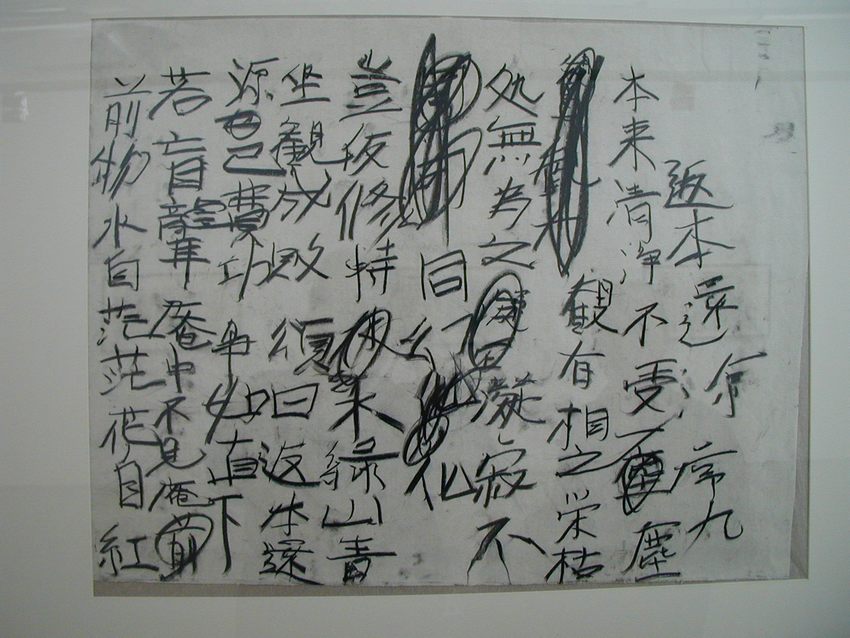 返本還 序九
本来清浄不受一塵
観有相之栄枯
処無為之凝寂不
同幻化
豈仮修特水緑山青
坐観成敗頌曰返本還
源已費功争如直下
若盲聾庵中不見庵
前物水自茫茫花自紅